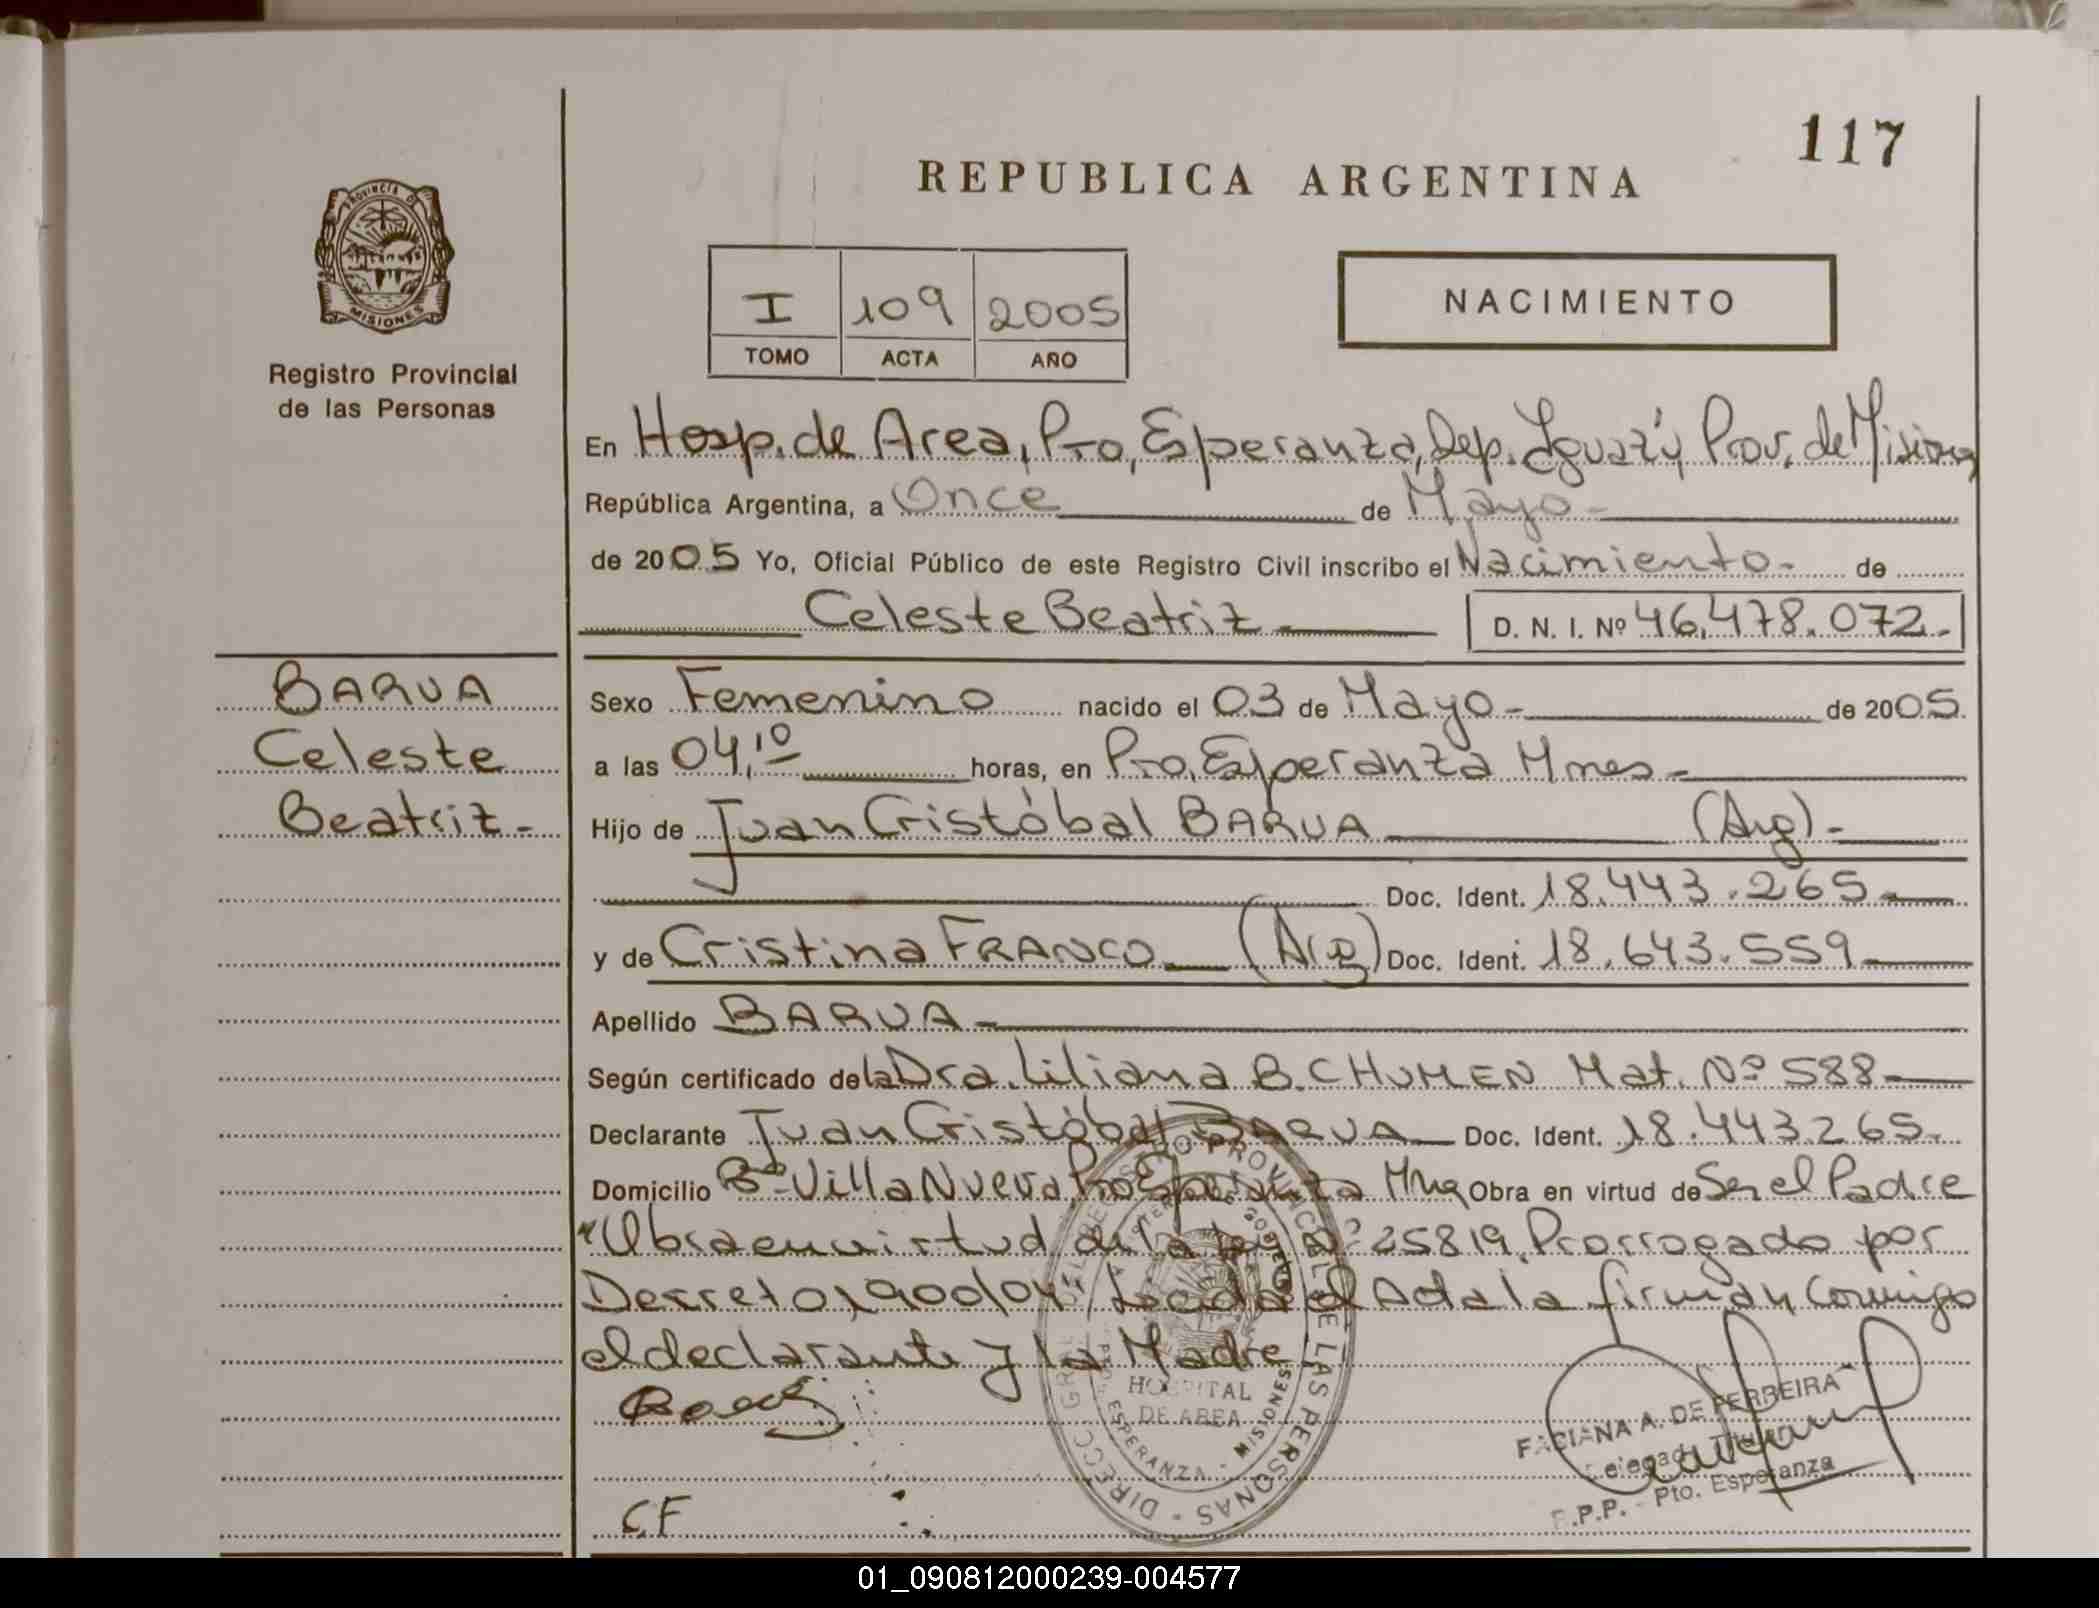 117
REPUBLICA ARGENTINA
PROVINCIA DE
MISIONES
Registro Provincial
de las Personas
I 109 2005
TOMO ACTA AÑO
NACIMIENTO
En Hosp. de Area, Pto, Esperanza, Dep. Iguazú Prov. de Misiones
República Argentina, a Once de Mayo-
de 2005 Yo, Oficial Público de este Registro Civil inscribo el Nacimiento- de
Celeste Beatriz - D. N. I. Nº 46.478.072.-
BARUA
Celeste
Beatriz -
Sexo Femenino nacido el 03 de Mayo - de 2005.
a las 04,10 horas, en Pto. Esperanza Mnes -
Hijo de Juan Cristóbal BARUA (Arg) -
Doc. Ident. 18.443.265 -
y de Cristina FRANCO - (Arg) Doc. Ident. 18.643.559 -
Apellido BARUA -
Según certificado de la Dra. Liliana B. CHUMEN Mat. Nº 588 -
Declarante Juan Cristóbal BARUA - Doc. Ident. 18.443.265.
Domicilio Bº Villa Nueva Pto Esperanza Obra en virtud de Ser el Padre
"Obra en virtud de la Ley Nº 25819, Prorrogado por
Decreto 1,900/04" Leida el Acta la firman Conmigo
el declarante y la Madre
CF
DIRECC. GRAL. DEL REGISTRO PROVINCIAL DE LAS PERSONAS
HOSPITAL
DE AREA
ESPERANZA - MISIONES
FACIANA A. DE FERREIRA
Delegada Titular
R.P.P. - Pto. Esperanza
01_090812000239-004577